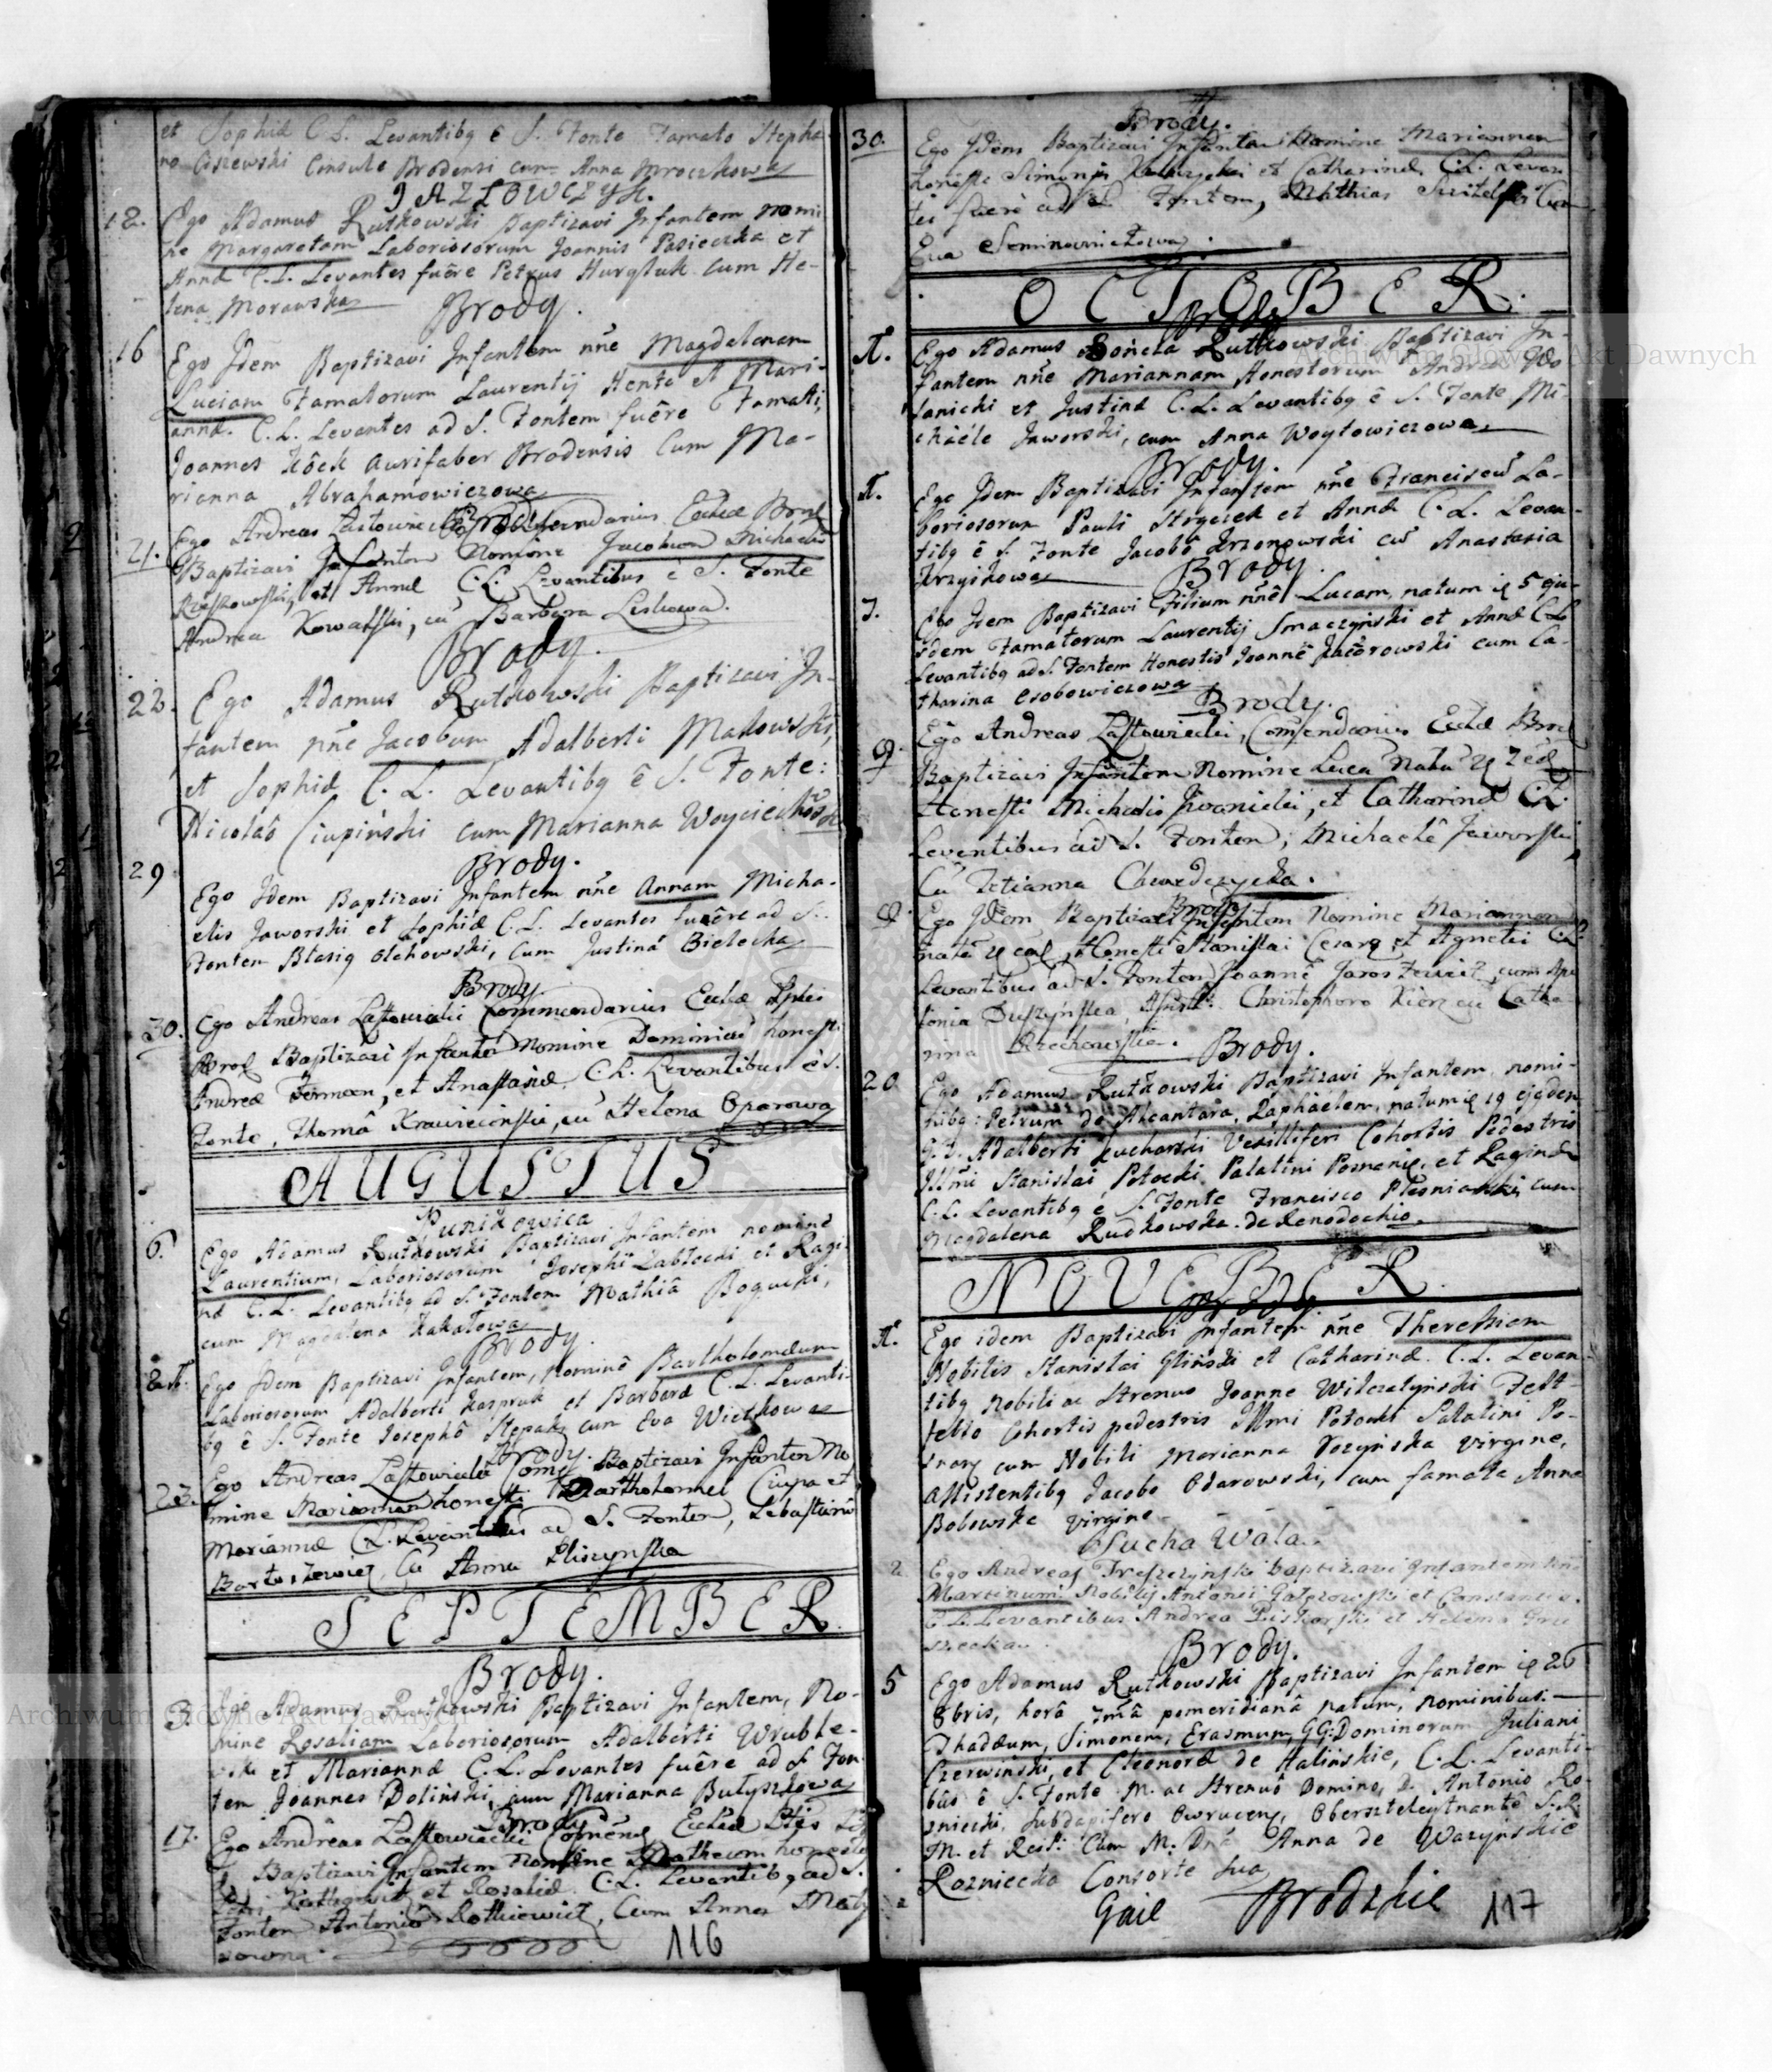 et Sophiæ C. L. Levantibq è S. Fonte Famato Stepha-
no Ciszewski Consule Brodensi cum Anna Mroczkowa
JAZLOWCZYK.
12. Ego Adamus Rutkowski Baptizavi Infantem nomi-
ne Margaretam Laboriosorum Joannis Pasieczka et
Annæ C. L. Levantes fuêre Petrus Hurgluk cum He-
lena Morawska
Brody.
16 Ego Idem Baptizavi Infantem nñe Magdalenam
Luciam Famatorum Laurentij Hente et Mari-
annæ. C. L. Levantes ad S. Fontem fuêre Famati,
Joannes Köck Aurifaber Brodensis Cum Ma-
rianna Abrahamowiczowa
Brody
21. Ego Andreas Lastowiecki Commendarius Eccliæ Brod
Baptizavi Infantem Nomine Jacobum Michaelis
Rzeszkowski, et Annæ C. L. Levantibus è S. Fonte
Andrea Kowalski, cũ Barbara Leskowa.
Brody.
22. Ego Adamus Rutkowski Baptizavi In-
fantem nñe Jacobum Adalberti Makowski,
et Sophiæ C. L. Levantibq ê S. Fonte:
Nicolaô Ciupiński cum Marianna Woyciechows
Brody.
29 Ego Idem Baptizavi Infantem nñe Annam Micha-
elis Jaworski et Sophiæ C. L. Levantes fuêre ad S.
Fontem Blasiq Olchowski, cum Justinâ Bielecka
Brody
30. Ego Andreas Lastowiecki Commendarius Eccliæ
Brod Baptizavi Infantem Nomine Dominicũ honesti
Andreæ Ferman, et Anastasiæ C. L. Levantibus è S.
Fonte, Thomâ Krawieciński, cũ Helena Oparowa
AUGUSTUS
Punikowica
6. Ego Adamus Rutkowski Baptizavi Infantem nomine
Laurentium, Laboriosorum Josephi Zabłocki et Regi
næ C. L. Levantibq ad S. Fontem Mathiâ Bogucki,
cum Magdalena Kakatowa
Brody.
Ego Idem Baptizavi Infantem, Nominê Bartholomæum
Laboriosorum Adalberti Kaspruk et Barbaræ C. L. Levanti-
bq ê S. Fonte Josephô Stepak, cum Eva Wietkowa
Brody.
23. Ego Andreas Lastowiecki Comẽ Baptizavi Infantem No
mine Mariannam honesti Bartholomei Ciupa et
Mariannæ C. L. Levantibus ad S. Fontem, Sebastiano
Bartoszewicz, Cũ Anna Pliszynska
SEPTEMBER.
Brody.
3. Ego Adamus Rutkowski Baptizavi Infantem, No-
mine Rosaliam Laboriosorum Adalberti Wruble-
wski et Mariannæ C. L. Levantes fuêre ad S. Fon
tem Joannes Doliński, cum Marianna Butyszkowa
Brody
17. Ego Andreas Lastowiecki Eccliæ
Baptizavi Infantem Nomine Matheum honesti
et Rosaliæ C. L. Levantibq ad S.
Fontem Antoniô Rotkiewicz, Cum Anna Maly
szowna.
116
Brody.
30. Ego Idem Baptizavi Infantem Nomine Mariannam
honesti Simonis et Catharinæ C. L. Levan
tes fuere ad S. Fontem, Mathias Cum
Eva Seminowiczowa.
OCTOBER.
Brody
1. Ego Adamus Bończa Rutkowski Baptizavi In-
fantem nñe Mariannam Honestorum Andreæ
lanicki et Justinæ C. L. Levantibq ê S. Fonte Mi-
chaéle Jaworski, cum Anna Woytowiczowa
Brody.
1. Ego Idem Baptizavi Infantem nñe Franciscũ La-
boriosorum Pauli Strycick et Annæ C. L. Levan-
tibq ê S. Fonte Jacobô Krzonowski cũ Anastasia
Krzyikowa
Brody.
7. Ego Idem Baptizavi Filium nñê Lucam, natum iq 5 eju-
sdem Famatorum Laurentij Smaczyński et Annæ C L
Levantibq ad S. Fontem Honestis Joannê Jaworowski cum Ca-
tharina Osobowiczowa
Brody.
9. Ego Andreas Lastowiecki, Comendarius Eccliæ Brod
Baptizavi Infantem Nomine Luca
Honesti Michalis Iwanicki, et Catharinæ C. L.
Leventibus ad S. Fontem, Michaelê Jaworski
Cũ Tetianna Chwedczycka.
Brody
9. Ego Idem Baptizavi Infantem Nomine Mariannam
natã Honesti Stanislai Cesarz et Agnetis C. L.
Levantibus ad S. Fontem Joannê Jaroszewicz, cum Apo
lonia Duszyńska, Christophoro Kierz cũ Catha
rina Orzechowska.
Brody.
20 Ego Adamus Rutkowski Baptizavi Infantem, nomi-
nibq: Petrum de Alcantara, Raphäelem, natum iq 19 ejqdem
G. D. Adalberti Kucharski Vexilliferi Cohortis Pedestris
Illmi Stanislai Potocki Palatini Posnaniq, et Reginæ
C. L. Levantibq ê S. Fonte Francisco Plesniacki cum
Magdalena Rudkowska. de Xenodochio.
NOVEMBER.
Brody
1. Ego idem Baptizavi Infantem nñe Theressiam
Nobilis Stanislai Gliński et Catharinæ C. L. Levan-
tibq Nobili ac Strenuo Joanne Wilczatyński Felt-
febro Cohortis pedestris Illmi Potocki Palatini Po-
snanq cum Nobili Marianna Rozyńska virgine,
Assistentibq Jacobo Odarowski, cum famata Anna
Bobowska virgine
Sucha Wola.
2 Ego Andreas Treszczyński baptizavi Infantem
Martinum Nobilis Antonii et Constantia.
C. L. Levantibus Andrea Piskorski et Helena Gru
szecka.
Brody.
5 Ego Adamus Rutkowski Baptizavi Infantem iq 26
8bris, horâ 7mâ pomeridianâ natum, nominibus:
Thadæum, Simonem, Erasmum, GG: Dominorum Juliani
Czerwiński, et Eleonoræ de Halińskie, C. L. Levanti-
bûs ê S. Fonte M. ac Strenuô Domino, D. Antonio Ro-
zniecki, Subdapifero Owrucenq, Obersztleytnantê S. R.
M. et Resp: Cum M. Dnâ Anna de Wazyńskie
Rozniecka Consorte sua
Gaie Brodzkie 117
Archiwum Główne Akt Dawnych
Archiwum Główne Akt Dawnych